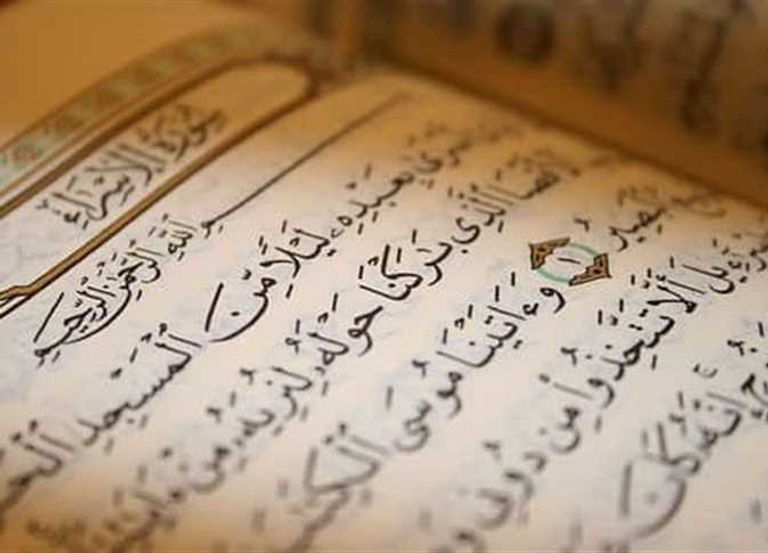 سُورَةُ الإِسْرَاءِ
بِسْمِ ٱللَّهِ ٱلرَّحْمَٰنِ ٱلرَّحِيمِ
أَسْرَىٰ بِعَبْدِهِۦ لَيْلًا مِّنَ ٱلْمَسْجِدِ
ٱلْأَقْصَا ٱلَّذِى بَٰرَكْنَا حَوْلَهُۥ لِنُرِيَهُۥ مِنْ ءَايَٰتِنَآ
ٱلْبَصِيرُ ١ وَءَاتَيْنَا مُوسَى ٱلْكِتَٰبَ
إِسْرَٰٓءِيلَ أَلَّا تَتَّخِذُوا۟ مِن دُونِى
نُوحٍ إِنَّهُۥ كَانَ